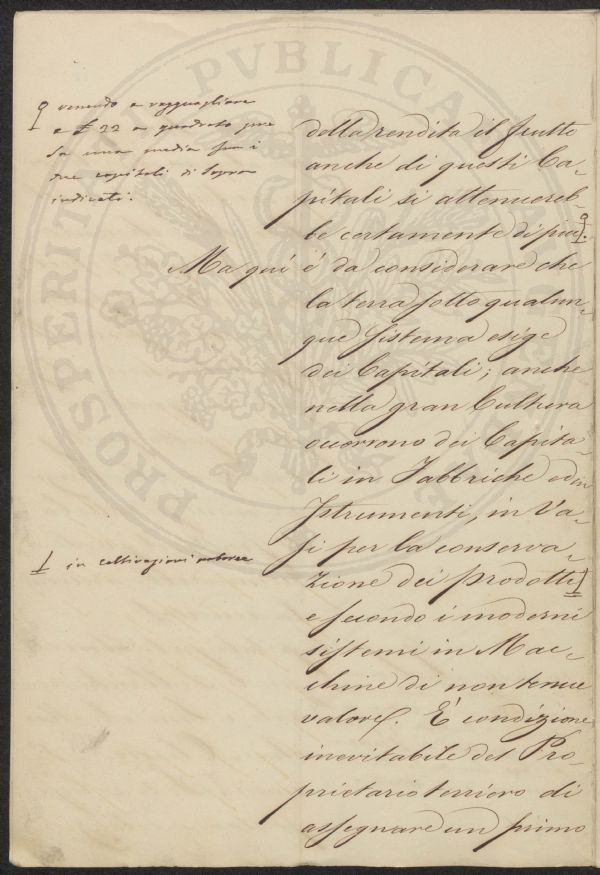 venendo a ragguagliare
a £ 22 a quadrato pre
sa una media fra i
due capitali di sopra
indicati.
della rendita il frutto
anche di questi Ca-
pitali si attenuereb-
be certamente di più.
Ma qui è da considerare che
la terra sotto qualun-
que sistema esige
dei Capitali; anche
nella gran Cultura
occorrono dei Capita-
li in Fabbriche ed in
Istrumenti, in Va-
si per la conserva-
zione dei prodotti
in coltivazioni arboree
e secondo i moderni
sistemi in Mac-
chine di non tenue
valore. È condizione
inevitabile del Pro-
prietario terriero di
assegnare un primo
PROSPERITÀ PVBLICA